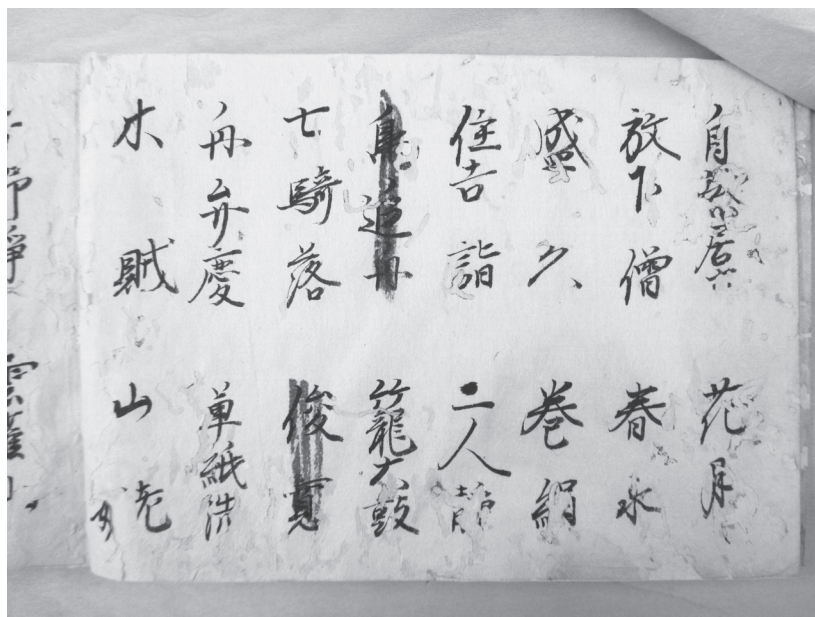 自然居士 花月
放下僧 春永
盛久 巻絹
住吉詣 二人静
鳥追舟 籠太鼓
七騎落 俊寛
舟弁慶 草紙洗
木賊 山姥